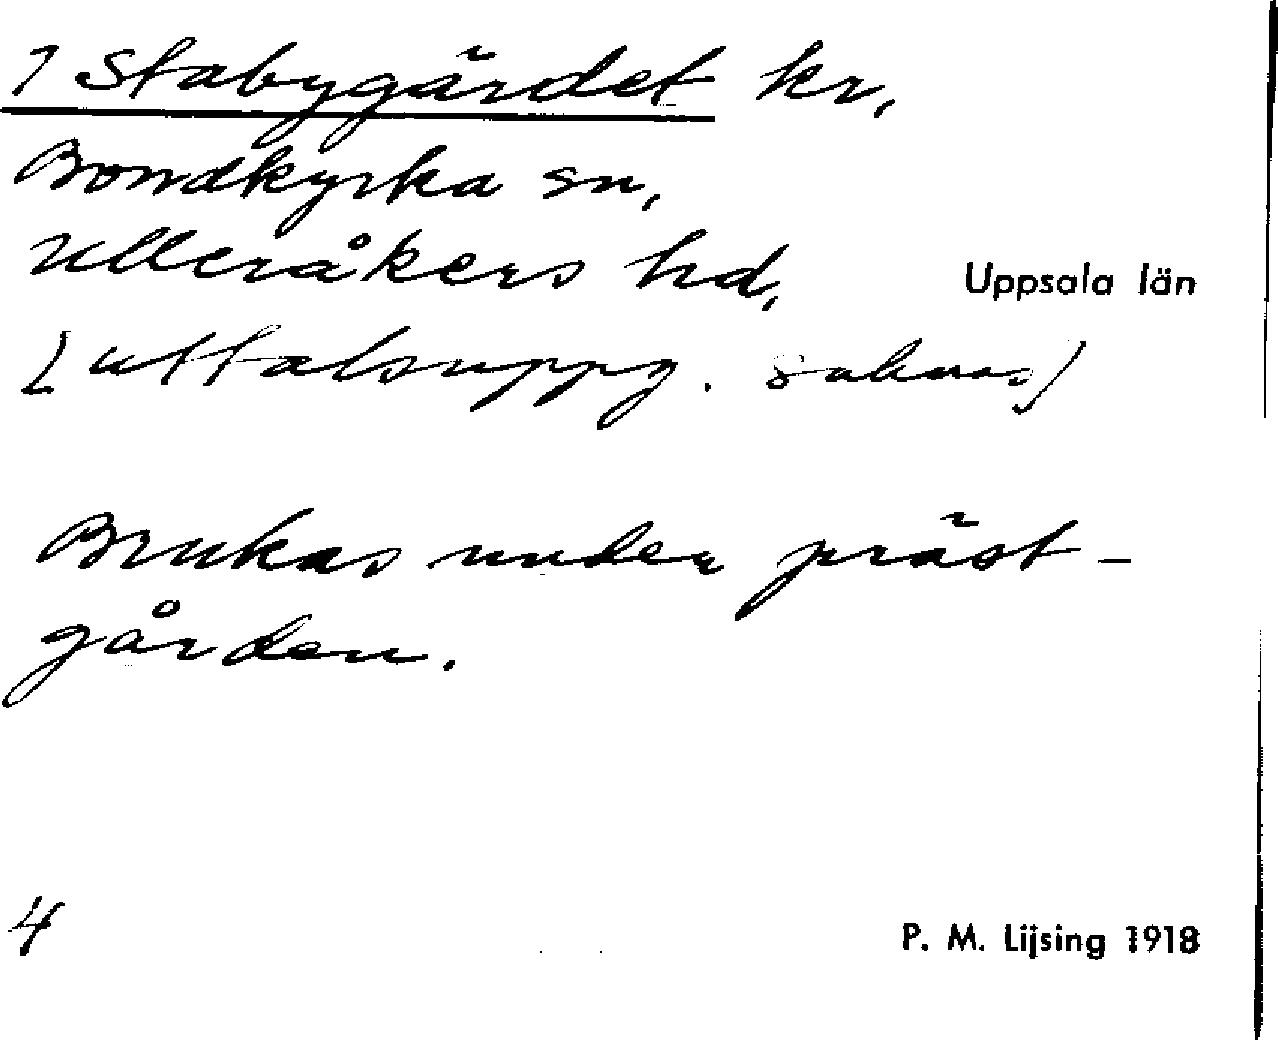 1 Stabygärdet kr,
Bondkyrka sn,
Ulleråkers hd, Uppsala län
[uttalsuppg. saknas]
Brukas under präst-
gården.
4 P. M. Lijsing 1918